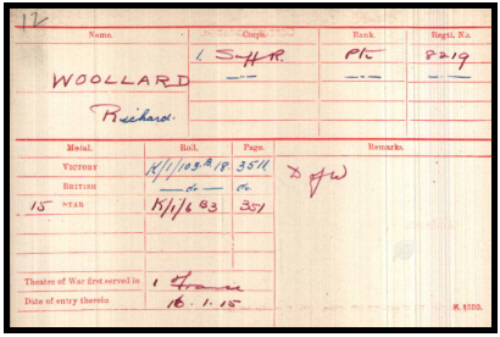 12
Name. Corps. Rank. Regtl. No.
WOOLLARD 1. Suff R. Pte 8219
Richard.
Medal. Roll. Page. Remarks.
VICTORY K/1/103 B 18 3511 D of W
BRITISH — do — do
15 STAR K/1/6 B3 351
Theatre of War first served in 1 France
Date of entry therein 16.1.15
K. 1380.